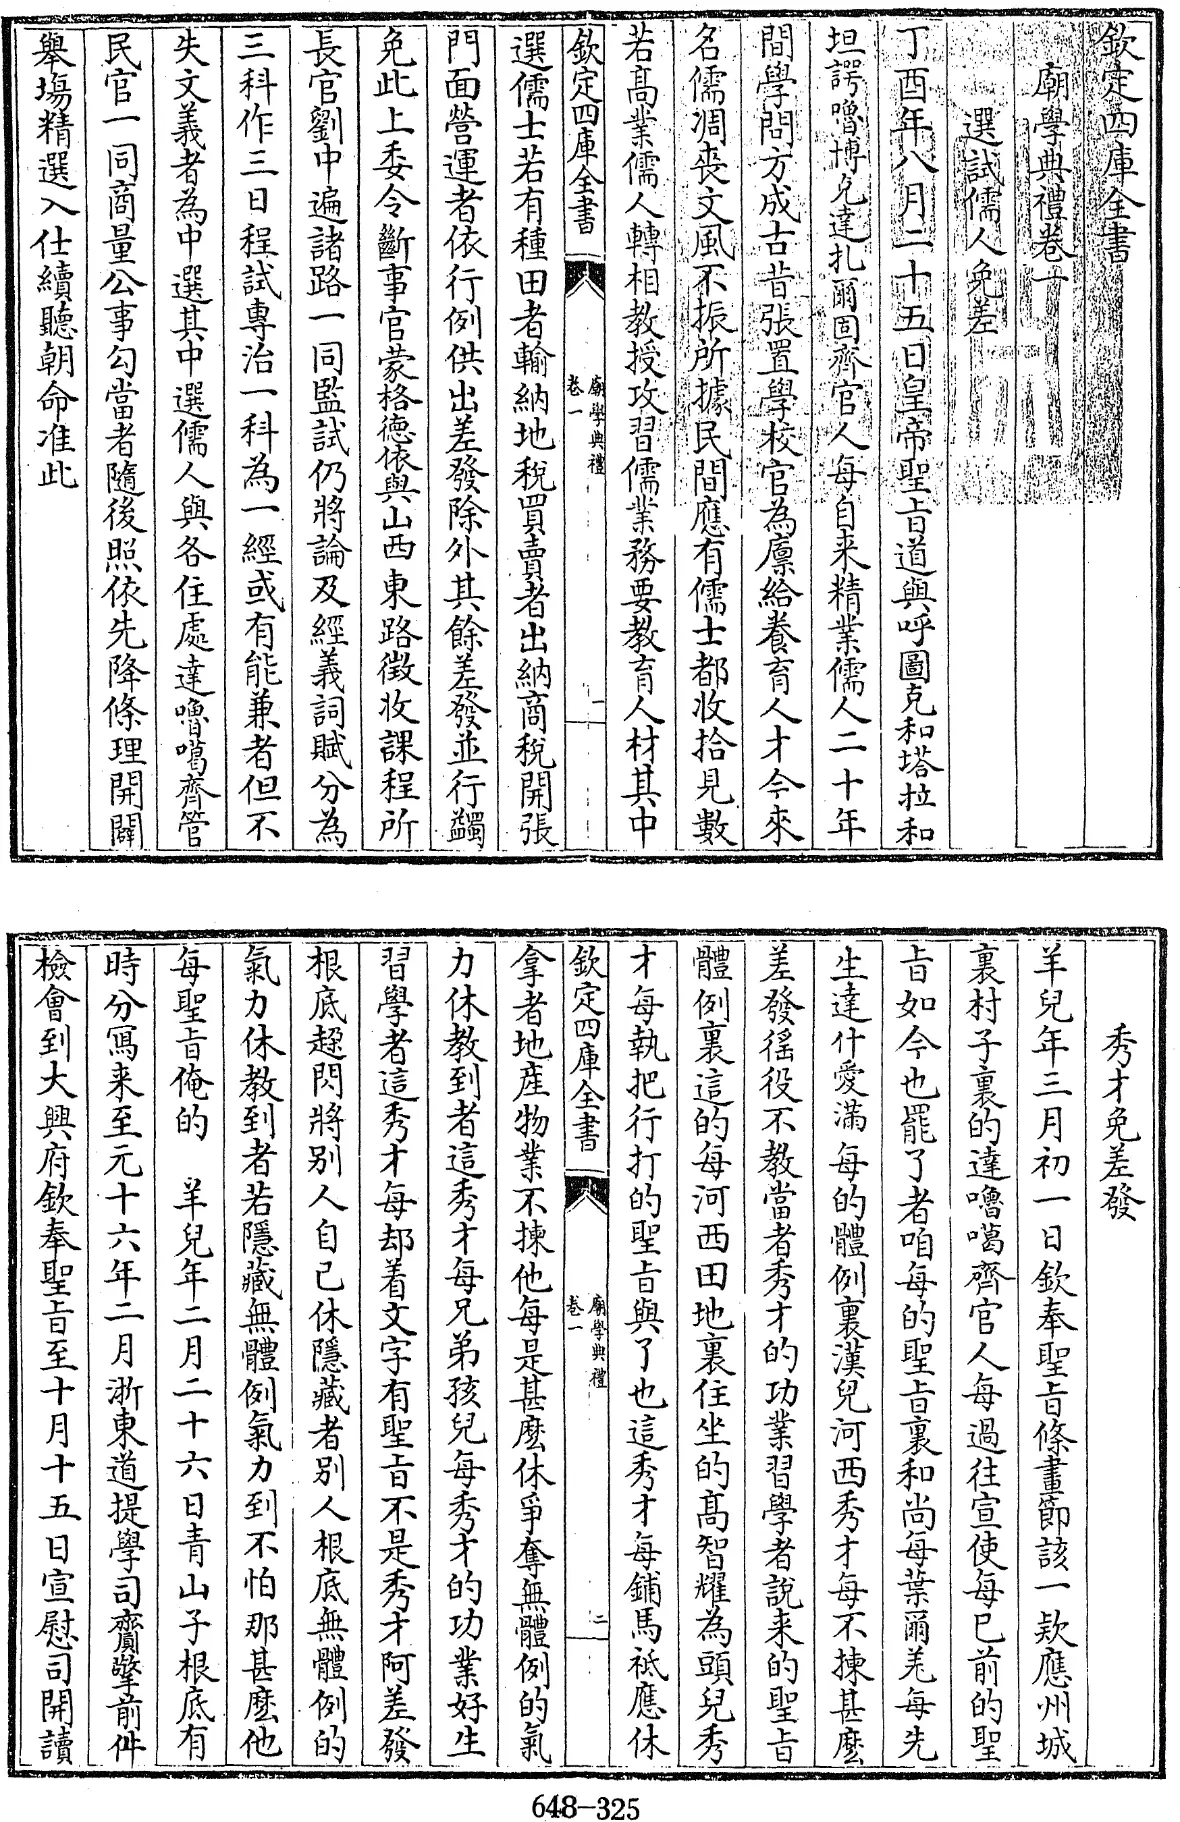 欽定四庫全書
廟學典禮卷一
選試儒人免差
丁酉年八月二十五日皇帝聖旨道與呼圖克和塔拉和
坦諤嚕博克達扎爾固齊官人每自来精業儒人二十年
間學問方成古昔張置學校官為廩給養育人才今來
名儒凋喪文風不振所據民間應有儒士都收拾見數
若髙業儒人轉相教授攻習儒業務要教育人材其中
欽定四庫全書
廟學典禮
卷一
一
選儒士若有種田者輸納地稅買賣者出納商稅開張
門面營運者依行例供出差發除外其餘差發並行蠲
免此上委令斷事官蒙格德依與山西東路徴收課程所
長官劉中遍諸路一同監試仍將論及經義詞賦分為
三科作三日程試專治一科為一經或有能兼者但不
失文義者為中選其中選儒人與各住處達嚕噶齊管
民官一同商量公事勾當者隨後照依先降條理開闢
舉場精選入仕續聽朝命准此
秀才免差發
羊兒年三月初一日欽奉聖旨條畫節該一欵應州城
裏村子裏的達嚕噶齊官人每過往宣使每已前的聖
旨如今也罷了者咱每的聖旨裏和尚每葉爾羌每先
生達什愛滿每的體例裏漢兒河西秀才每不揀甚麽
差發徭役不教當者秀才的功業習學者說来的聖旨
體例裏這的每河西田地裏住坐的髙智耀為頭兒秀
才每執把行打的聖旨與了也這秀才每鋪馬祗應休
欽定四庫全書
廟學典禮
卷一
二
拿者地産物業不揀他每是甚麽休爭奪無體例的氣
力休教到者這秀才每兄弟孩兒每秀才的功業好生
習學者這秀才每却着文字有聖旨不是秀才阿差發
根底趓閃將別人自己休隱藏者別人根底無體例的
氣力休教到者若隱藏無體例氣力到不怕那甚麽他
每聖旨俺的　羊兒年二月二十六日青山子根底有
時分寫来至元十六年二月浙東道提學司齎擎前件
檢會到大興府欽奉聖旨至十月十五日宣慰司開讀
648-325